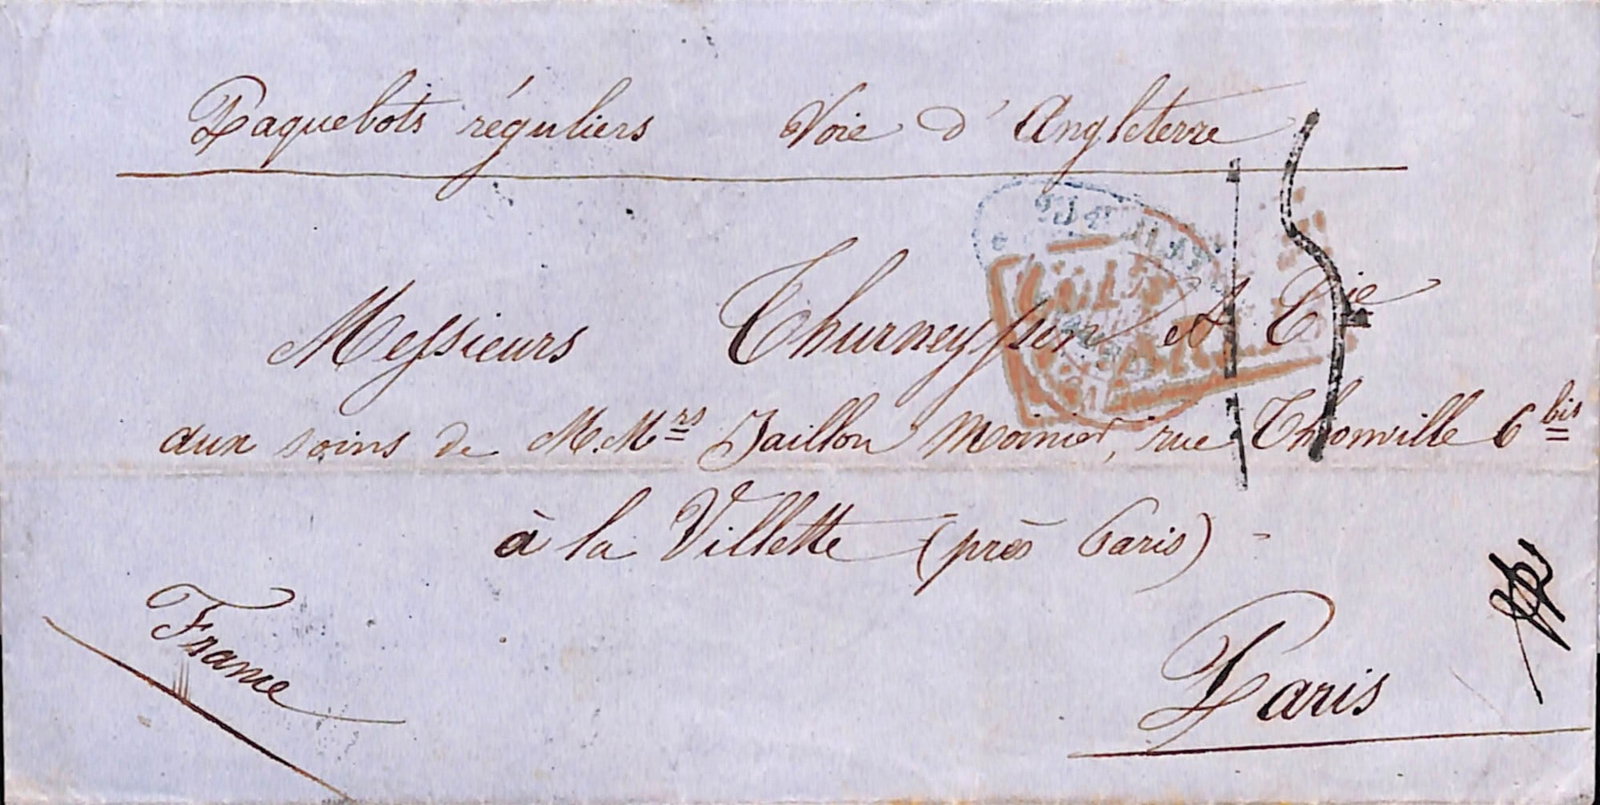 Paquebots réguliers Voie d'Angleterre
Messieurs Thurneyssen et Cie
aux soins de M.Mrs Jaillon Moinier, rue Thionville 6 bis
à la Villette (près Paris)
France
Paris
15